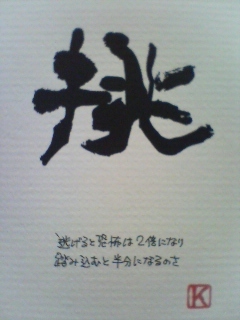 挑
逃げると恐怖は2倍になり
踏み込むと半分になるのさ
K